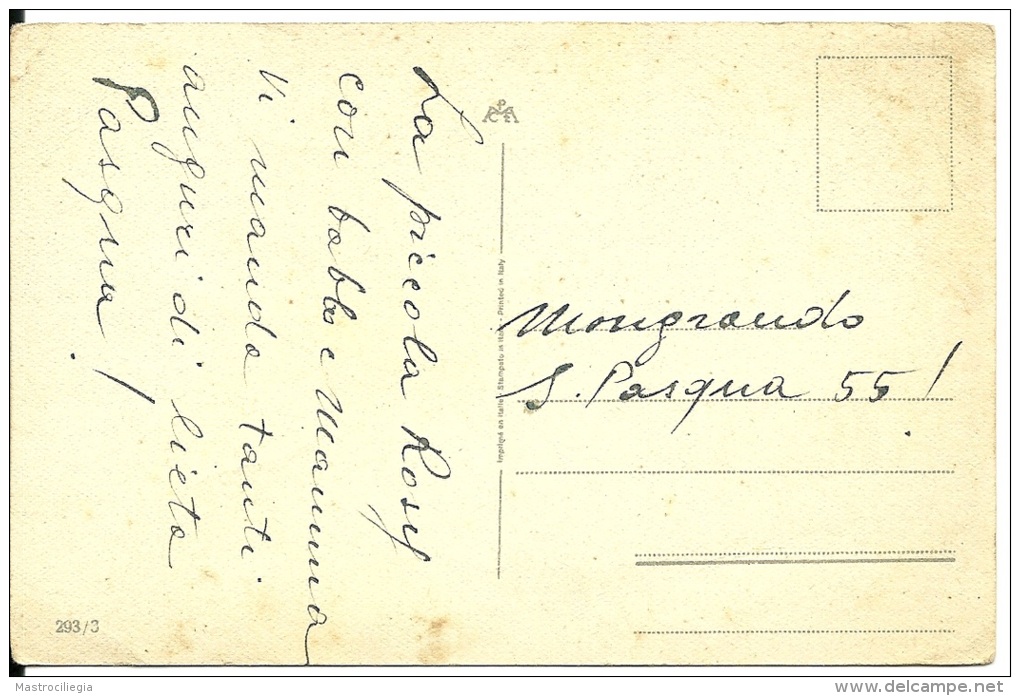 La piccola Rosy
con babbo e Mamma
Vi manda tanti
auguri di lieta
Pasqua!
Mongrando
S. Pasqua 55!
Imprimé en Italie - Stampato in Italia - Printed in Italy
293/3
Mastrociliegia
delcampe.net